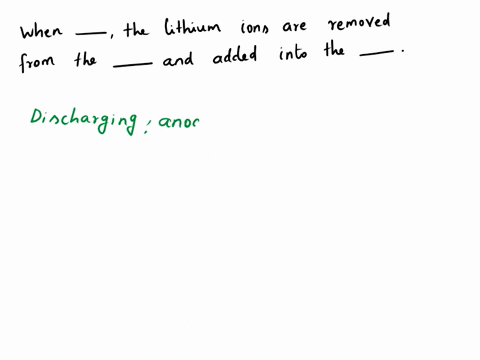 When ___, the lithium ions are removed
from the ___ and added into the ___.
Discharging; anoc